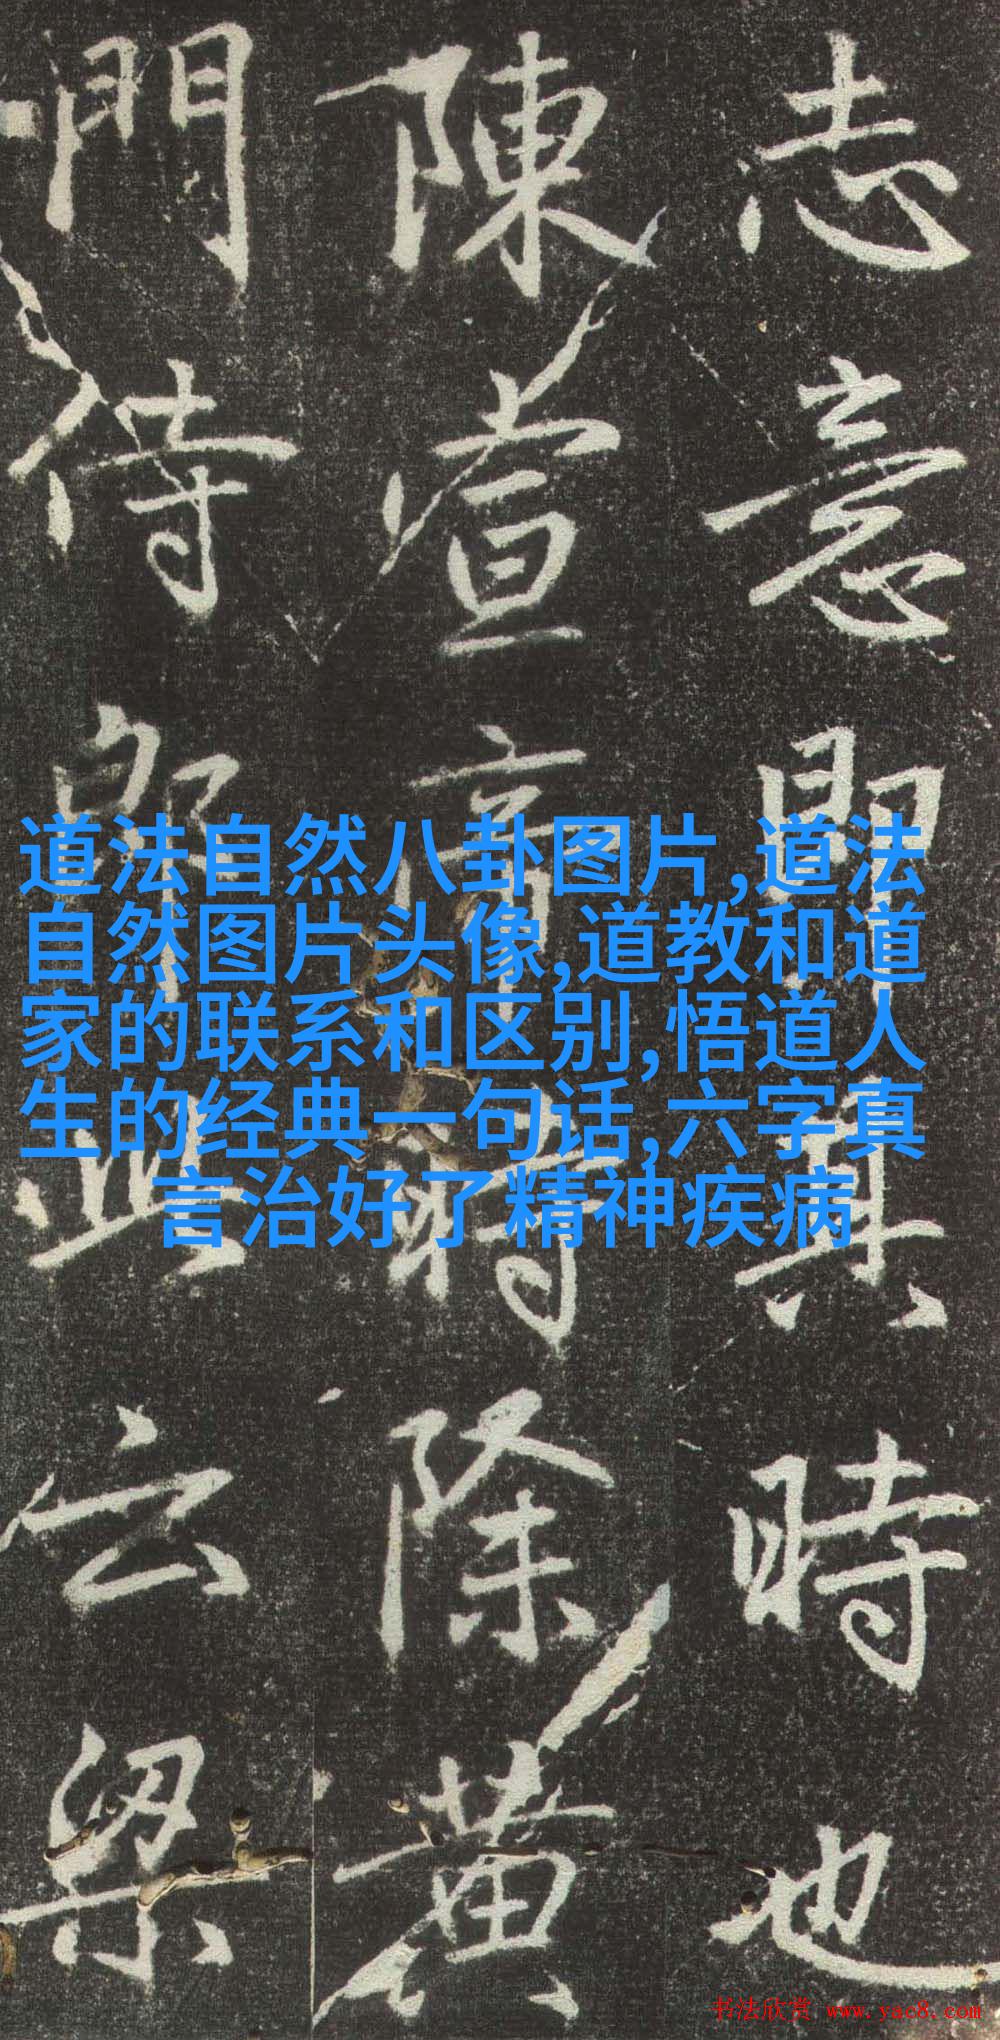 志意即其時也
陳宣帝時除黄
門侍郎此云梁
道法自然八卦图片,道法
自然图片头像,道教和道
家的联系和区别,悟道人
生的经典一句话,六字真
言治好了精神疾病
书法欣赏 www.yac8.com